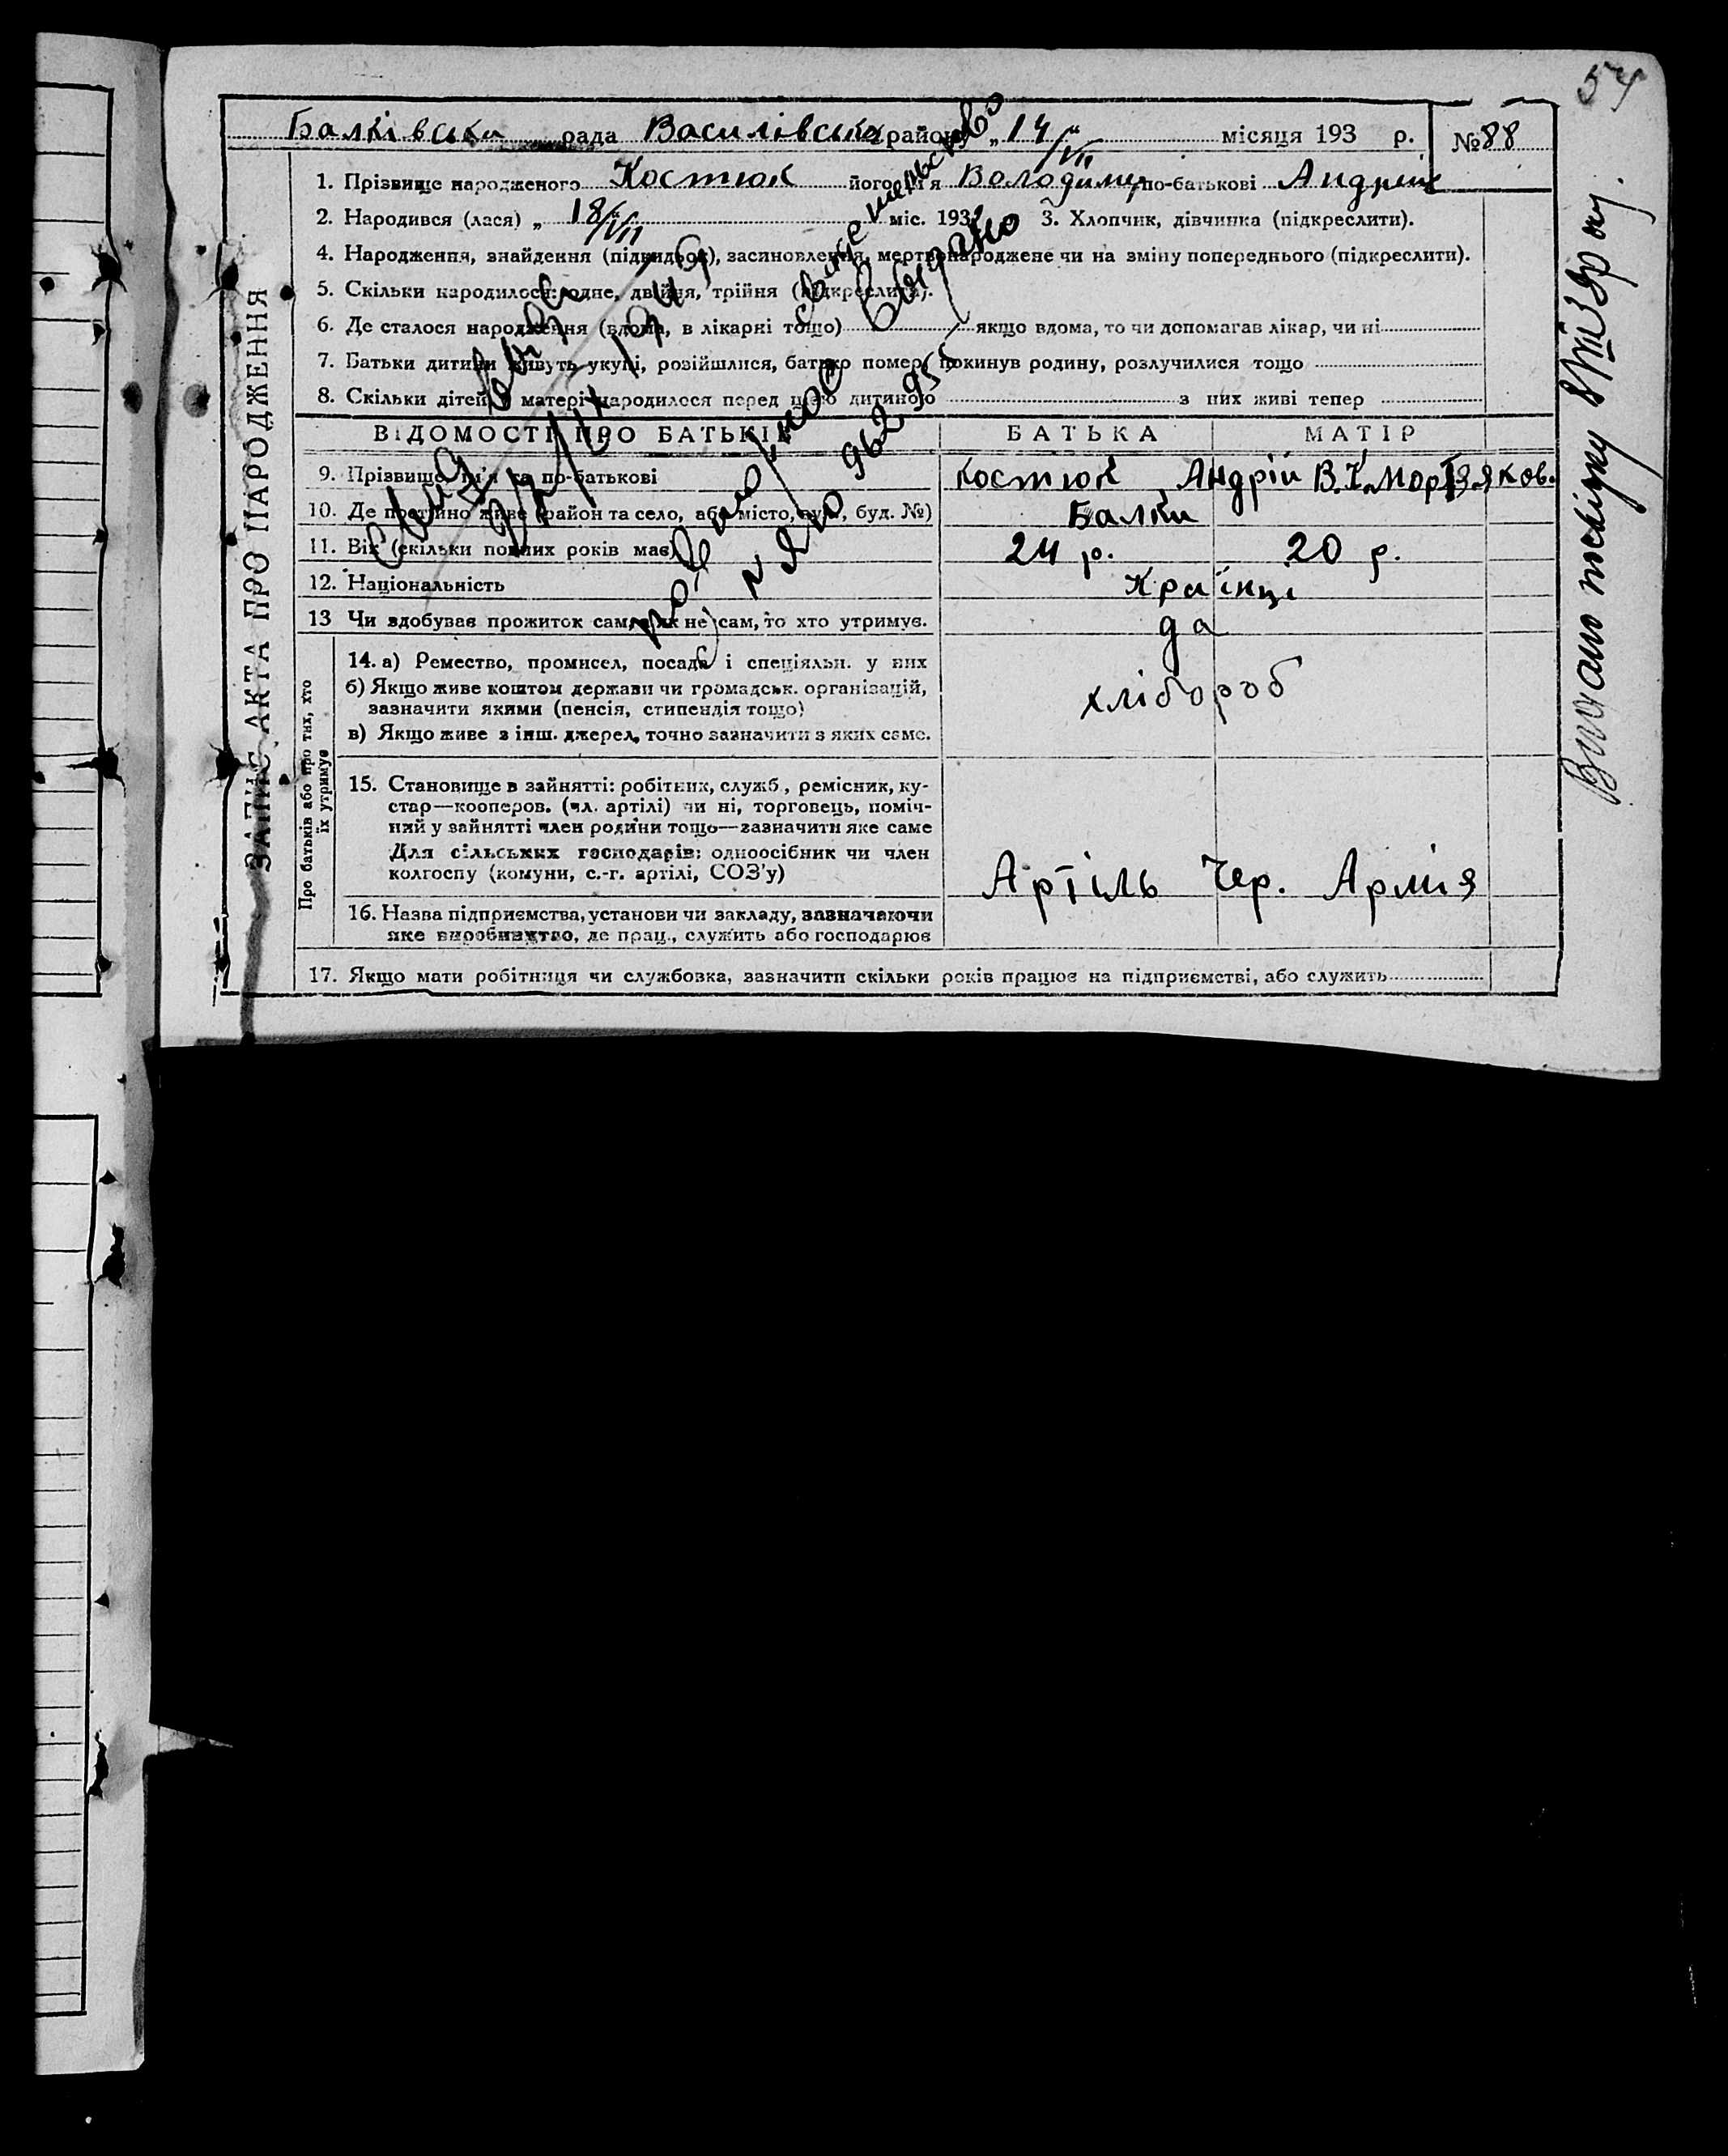 54
Балківська рада Василівська район „14/VII" місяця 193 р. № 88
ЗАПИС АКТА ПРО НАРОДЖЕННЯ
1. Прізвище народженого Костюк його ім'я Володимир по-батькові Андрій
2. Народився (лася) „18/VII міс. 193 3. Хлопчик, дівчинка (підкреслити).
4. Народження, знайдення (підкидьок), засиновлення, мертвонароджене чи на зміну попереднього (підкреслити).
5. Скільки народилося: одне, двійня, трійня (підкреслити).
6. Де сталося народження (вдома, в лікарні тощо) якщо вдома, то чи допомагав лікар, чи ні
7. Батьки дитини живуть укупі, розійшлися, батько помер, покинув родину, розлучилися тощо
8. Скільки дітей у матері народилося перед цією дитиною з них живі тепер
ВІДОМОСТІ ПРО БАТЬКІВ БАТЬКА МАТІР
9. Прізвище, ім'я та по-батькові Костюк Андрій В.
10. Де постійно живе (район та село, або місто, вул., буд. №) Балки
11. Вік (скільки повних років має) 24 р. 20 р.
12. Національність Країнці
13 Чи здобував прожиток сам, а як не сам, то хто утримує. да
Про батьків або про тих, хто їх утримує
14. а) Ремество, промисел, посада і спеціяльн. у них
б) Якщо живе коштом держави чи громадськ. організацій,
зазначити якими (пенсія, стипендія тощо)
хлібороб
в) Якщо живе з інш. джерел, точно зазначити з яких саме.
15. Становище в зайнятті: робітник, служб., ремісник, ку-
стар—кооперов. (чл. артілі) чи ні, торговець, поміч-
ний у зайнятті член родини тощо—зазначити яке саме
Для сільських господарів: одноосібник чи член
колгоспу (комуни, с.-г. артілі, СОЗ'у)
Артіль Чер. Армія
16. Назва підприємства, установи чи закладу, зазначаючи
яке виробництво, де прац., служить або господарює
17. Якщо мати робітниця чи службовка, зазначити скільки років працює на підприємстві, або служить
свидетельство
выдано